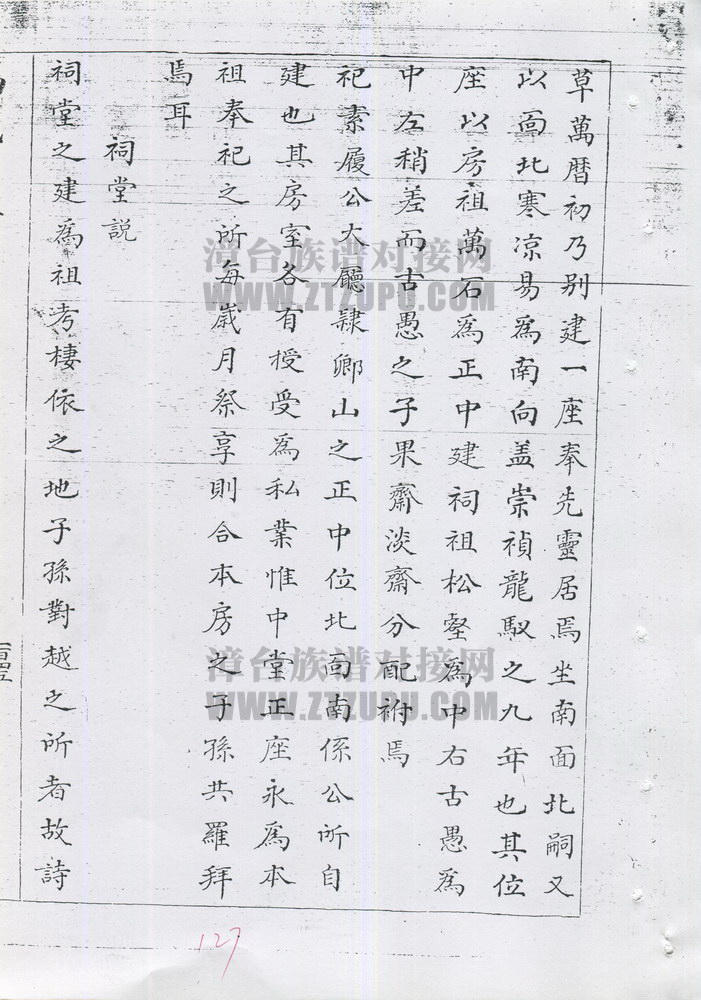 草萬曆初乃別建一座奉先靈居焉坐南面北嗣又
以面北寒凉易為南向盖崇禎龍馭之九年也其位
座以房祖萬石為正中建祠祖松壑為中右古愚為
中左稍差而古愚之子果齋淡齋分配祔焉
祀素履公大廳隷鄉山之正中位北向南係公所自
建也其房室各有授受為私業惟中堂正座永為本
祖奉祀之所每歲月祭享則合本房之子孫共羅拜
焉耳
祠堂説
祠堂之建為祖考棲依之地子孫對越之所者故詩
一百四五
127
漳台族谱对接网
WWW.ZTZUPU.COM
漳台族谱对接网
WWW.ZTZUPU.COM